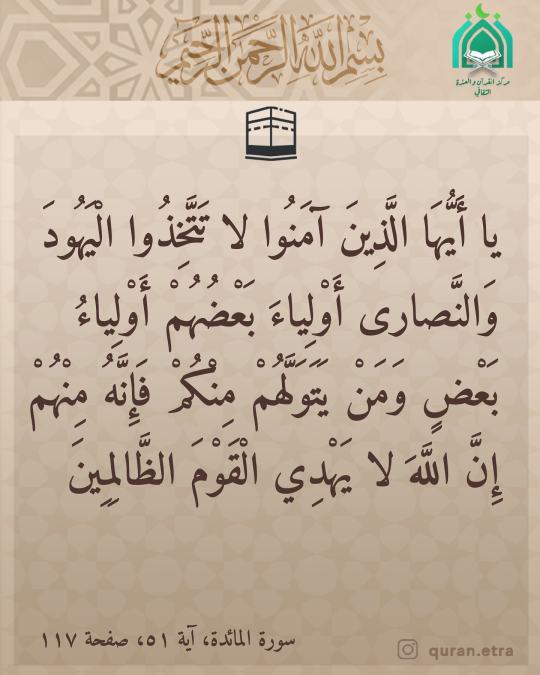 بسم الله الرحمن الرحيم
مركز القرآن والعترة
الثقافي
يا أَيُّهَا الَّذِينَ آمَنُوا لا تَتَّخِذُوا الْيَهُودَ
وَالنَّصارى أَوْلِياءَ بَعْضُهُمْ أَوْلِياءُ
بَعْضٍ وَمَنْ يَتَوَلَّهُمْ مِنْكُمْ فَإِنَّهُ مِنْهُمْ
إِنَّ اللَّهَ لا يَهْدِي الْقَوْمَ الظَّالِمِينَ
سورة المائدة، آية ٥١، صفحة ١١٧
quran.etra